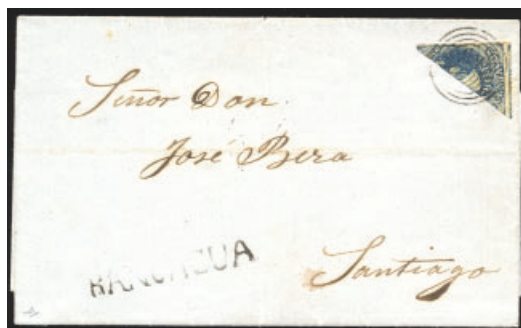 Señor Don
José Bera
RANCAGUA
Santiago